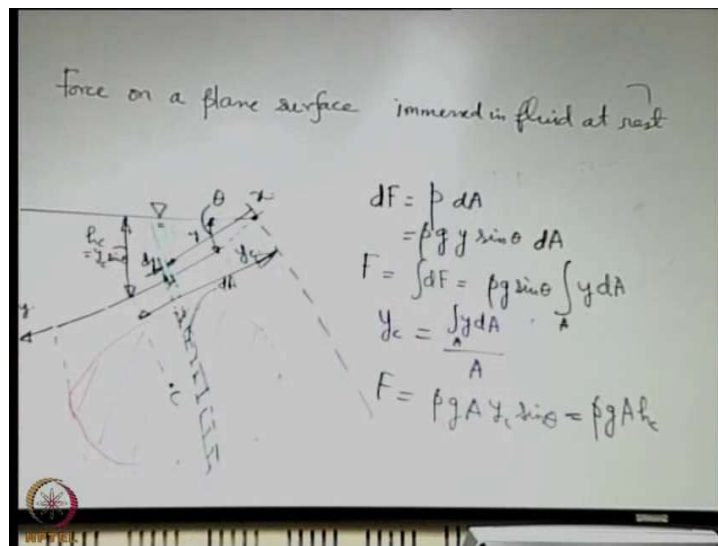 Force on a plane surface immersed in fluid at rest
θ
x
y
y_c
h_c
= y_c sinθ
dy
dA
y
.c
dF = p dA
= ρ g y sinθ dA
F = ∫dF = ρg sinθ ∫_A y dA
y_c = ∫_A y dA / A
F = ρ g A y_c sinθ = ρ g A h_c
NPTEL